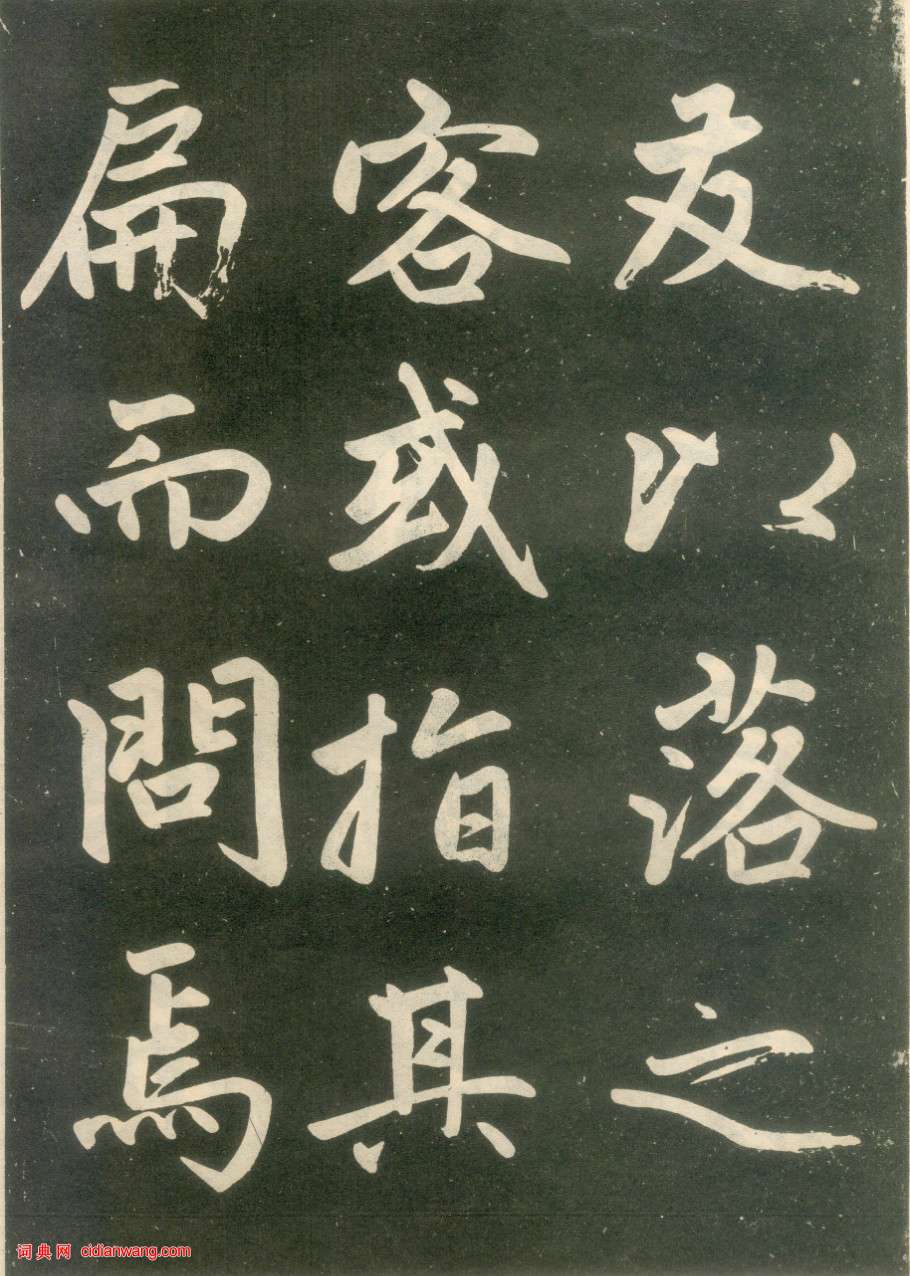 友以落之
客或指其
扁而問焉
词典网 cidianwang.com